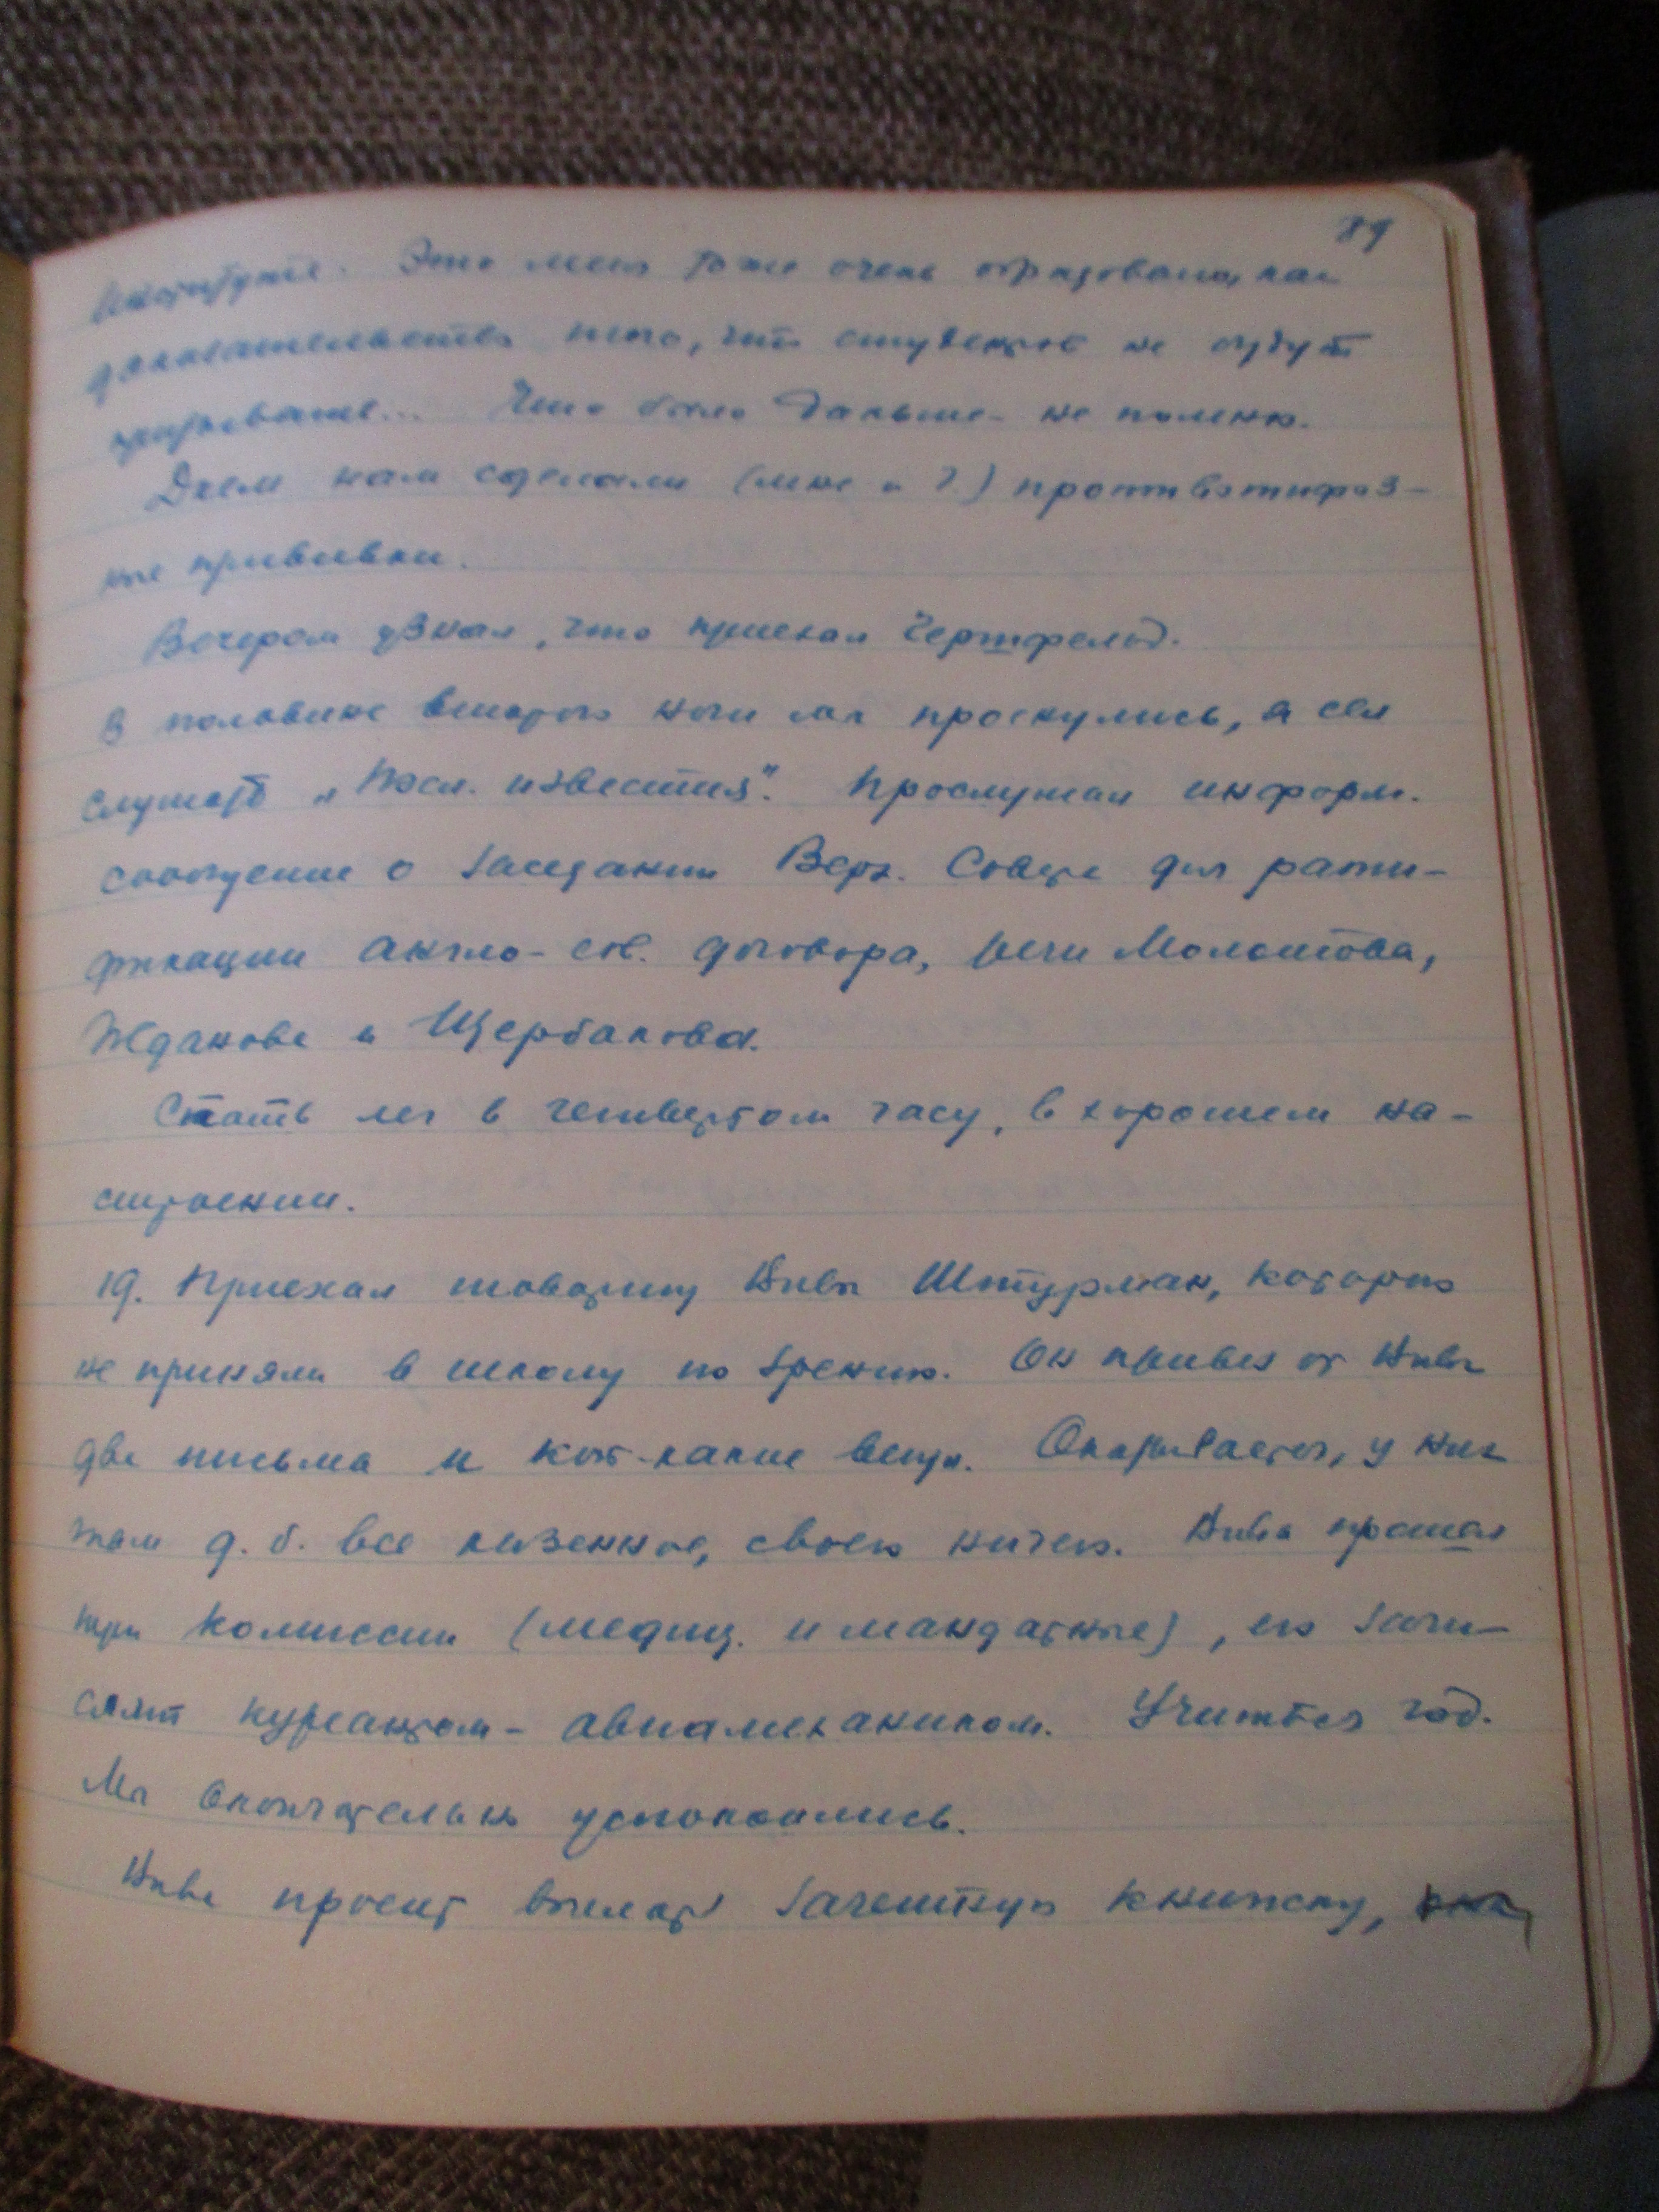 89
Институте. Это меня тоже очень обрадовало, как
доказательство того, что студентов не будут
призывать... Что было дальше - не помню.
Днем нам сделали (мне и ?.) противотифоз-
ные прививки.
Вечером узнал, что приехал Гертфельд.
В половине второго ночи мы проснулись, я сел
слушать „Посл. известия". Прослушал информ.
сообщение о заседании Верх. Совета для рати-
фикации англо-сов. договора, речи Молотова,
Жданова и Щербакова.
Спать лег в четвертом часу, в хорошем на-
строении.
19. Приехал товарищ Штурман, которого
не приняли в школу по зрению. Он привез от
две письма и кой-какие вещи. Оказывается, у них
там д.б. все казенное, своего ничего. прошел
три комиссии (медиц. и мандатные), его зачи-
слят курсантом-авиамехаником. Учиться год.
Мы окончательно успокоились.
просит выслать зачетную книжку,